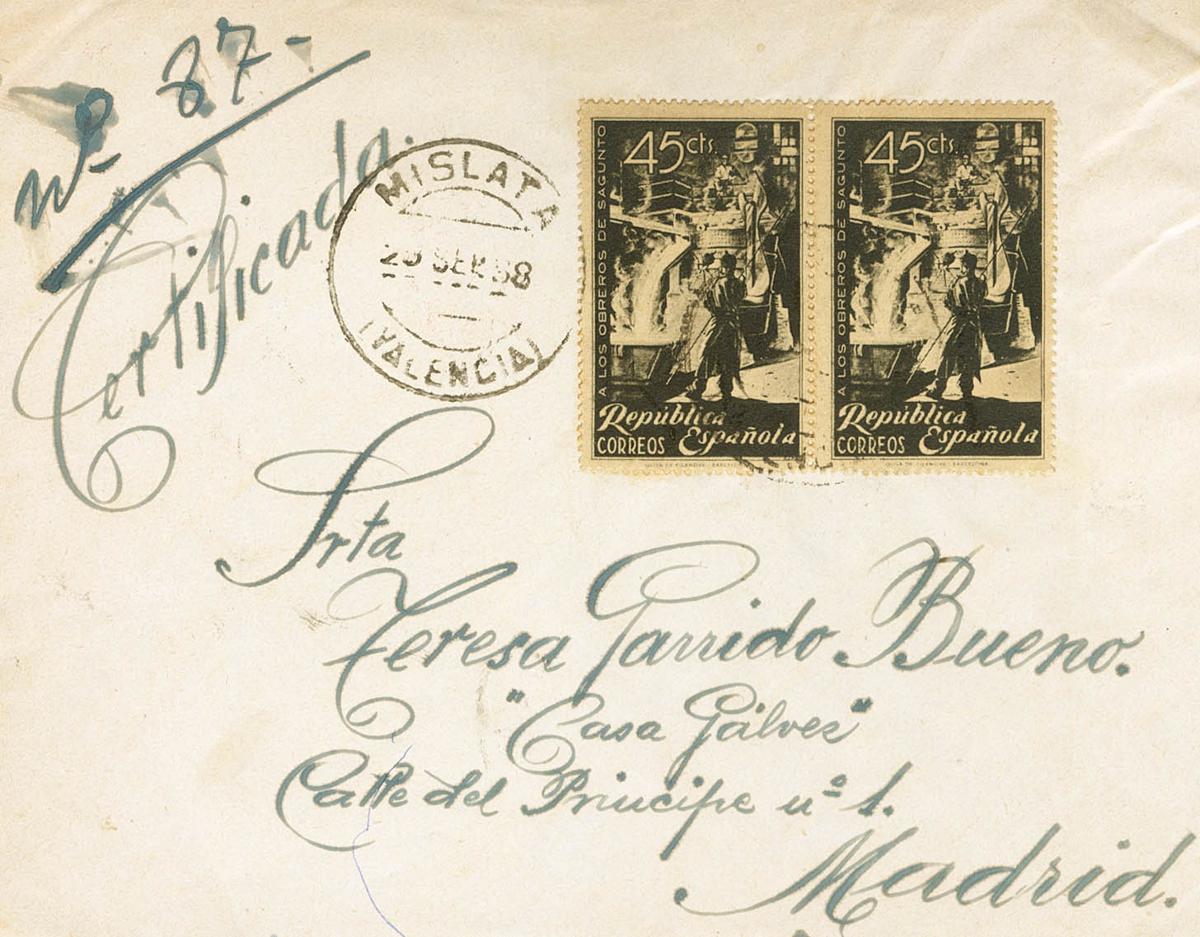 nº 87-
Certificada.
MISLATA
SEP 38
(VALENCIA)
45cts.
A LOS OBREROS DE SAGUNTO
República
CORREOS Española
45cts.
A LOS OBREROS DE SAGUNTO
República
CORREOS Española
Srta
Teresa Garrido Bueno.
"Casa Gálvez"
Calle del Príncipe nº 1.
Madrid.